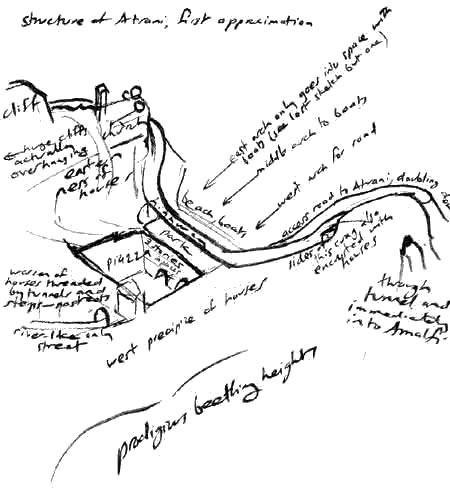 structure of Atrani, first approximation
cliff
church
← huge cliffs
actually
overhanging
eastern
ness of
houses
east arch only goes into space with
boats (see last sketch but one)
middle arch to boats
west arch for road
access road to Atrani, doubling
beach boats
park
piazza
sides of this cung also
encrypted with
houses
warren of
houses threaded
by tunnels and
steps — no streets
river-like only
street
west precipice of houses
through
tunnel and
immediately
into Amalfi
prodigious beetling heights